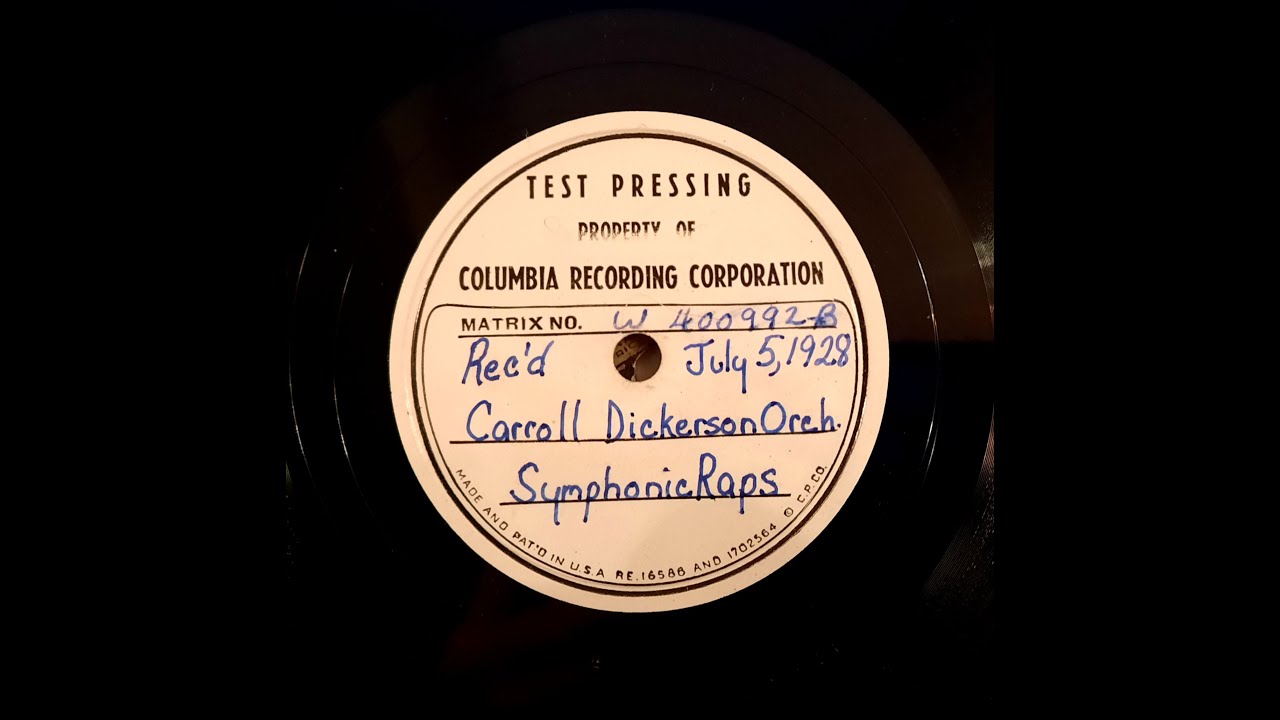 TEST PRESSING
PROPERTY OF
COLUMBIA RECORDING CORPORATION
MATRIX NO. W 400992-B
Rec'd July 5, 1928
Carroll Dickerson Orch.
Symphonic Raps
MADE AND PAT'D IN U.S.A RE.16588 AND 1702564 © C.P.CO.